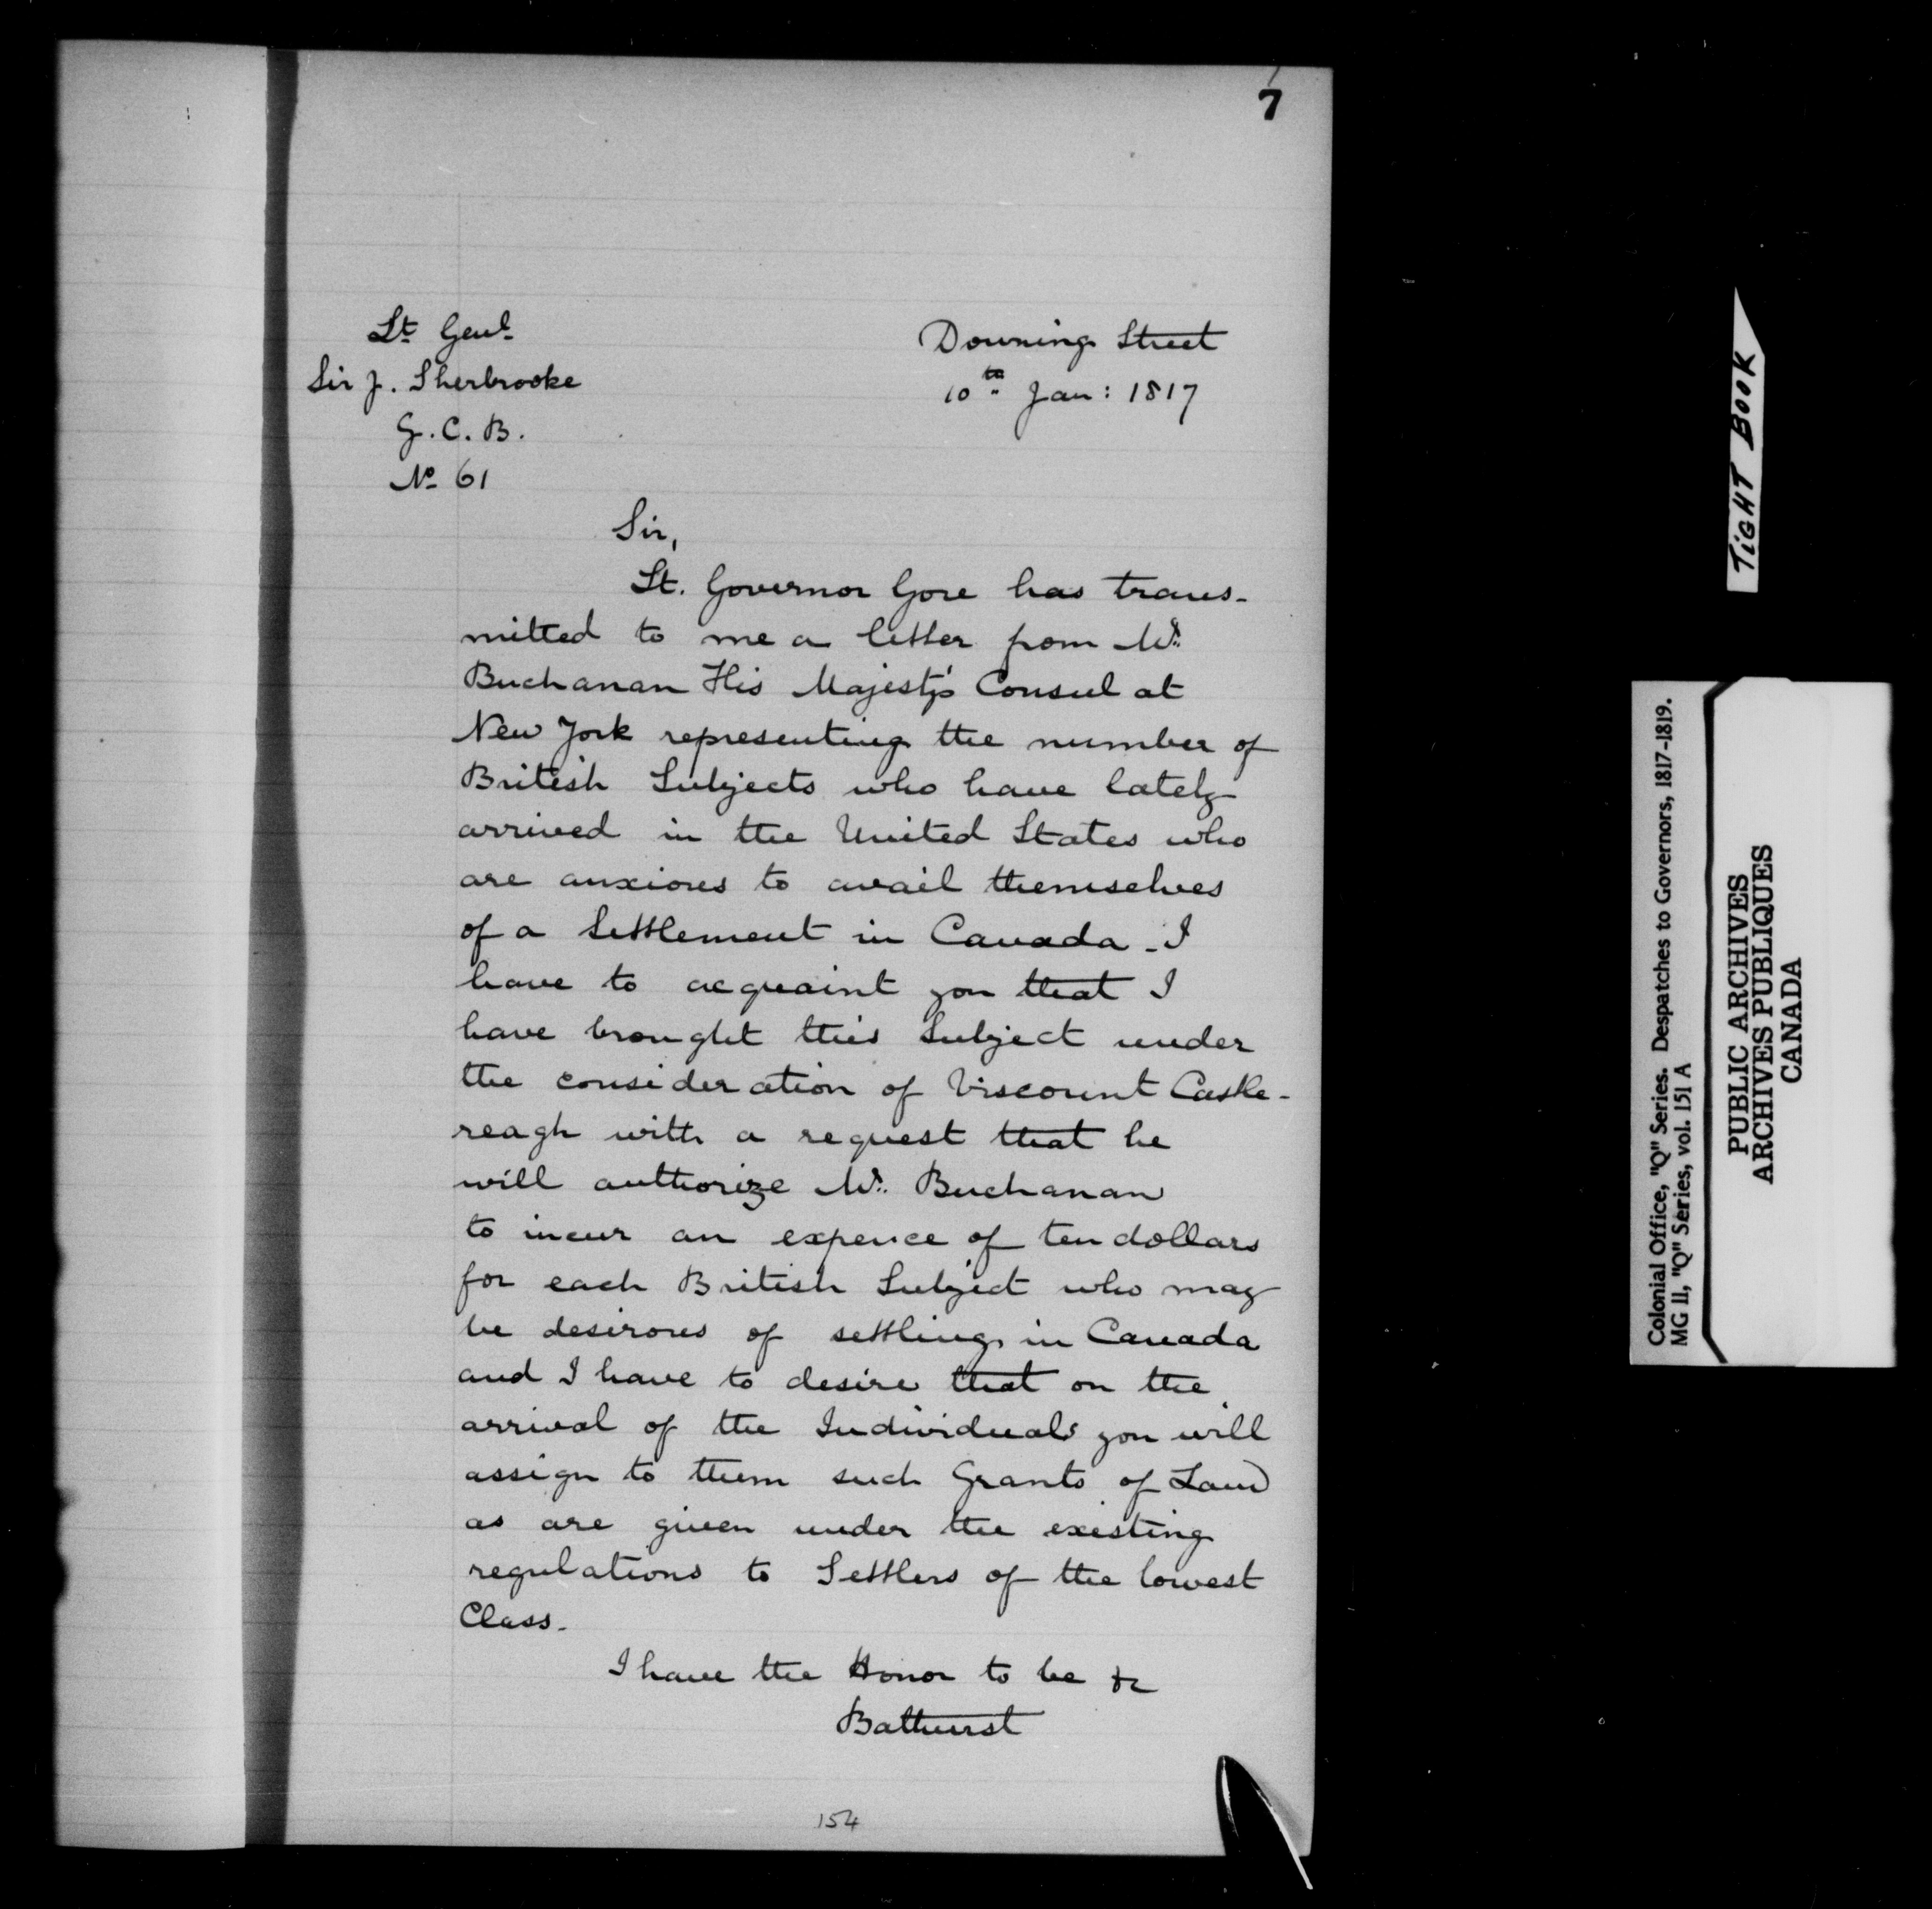 7
Lt Genl
Sir J. Sherbrooke
G.C.B.
No 61
Downing Street
10th Jan: 1817
Sir,
Lt. Governor Gore has trans-
mitted to me a letter from Mr.
Buchanan His Majesty's Consul at
New York representing the number of
British Subjects who have lately
arrived in the United States who
are anxious to avail themselves
of a Settlement in Canada - I
have to acquaint you that I
have brought this Subject under
the consideration of Viscount Castle-
reagh with a request that he
will authorize Mr. Buchanan
to incur an expence of ten dollars
for each British Subject who may
be desirous of settling in Canada
and I have to desire that on the
arrival of the Individuals you will
assign to them such Grants of Land
as are given under the existing
regulations to Settlers of the lowest
Class.
I have the Honor to be &c
Bathurst
154
TIGHT BOOK
Colonial Office, "Q" Series. Despatches to Governors, 1817-1819.
MG 11, "Q" Series, vol. 151 A
PUBLIC ARCHIVES
ARCHIVES PUBLIQUES
CANADA